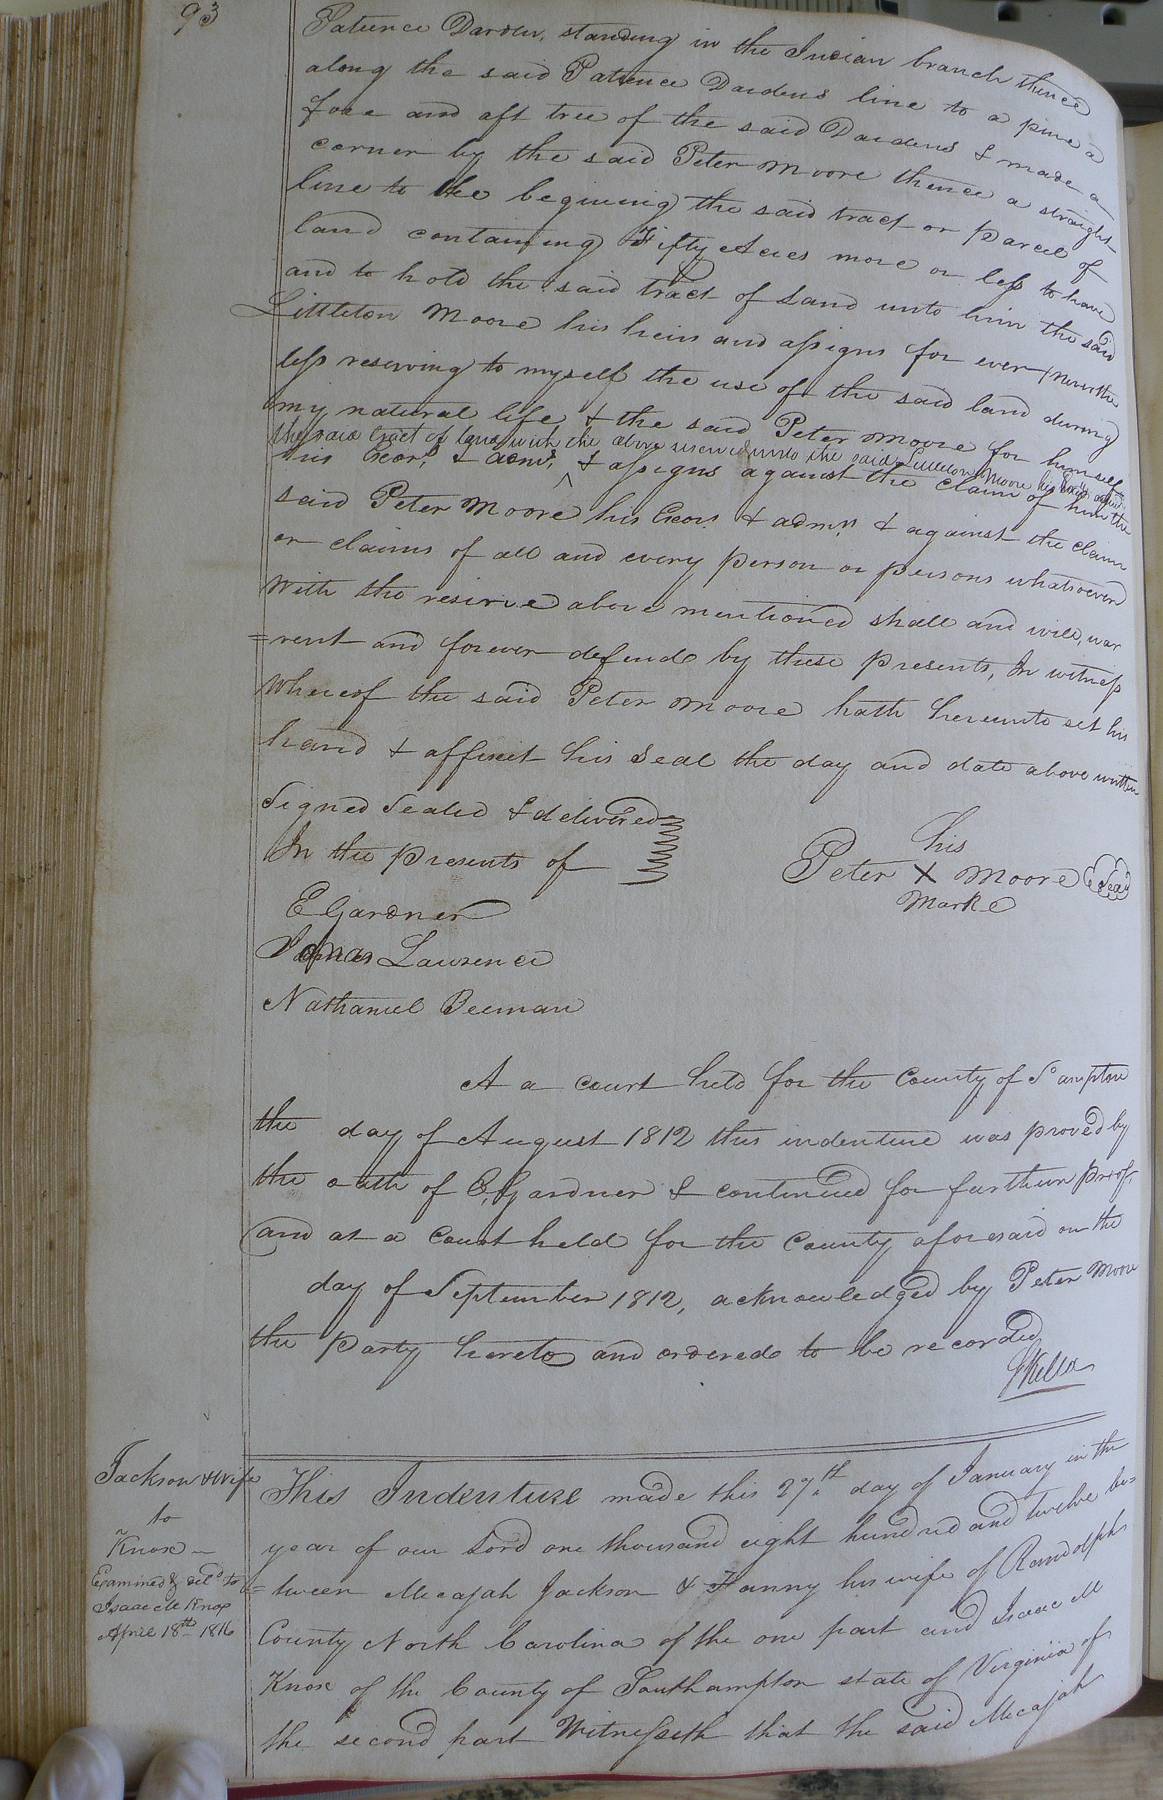 93
Patience Darden, standing in the Indian branch thence
along the said Patience Dardens line to a pine a
fore and aft tree of the said Dardens & made a
corner by the said Peter Moore thence a straight
line to the begining the said tract or parcel of
land containing Fifty Acres more or less to have
and to hold the said tract of Land unto him the said
Littleton Moore his heirs and assigns for ever, neverthe
less reserving to myself the use of the said land during
my natural life & the said Peter Moore for himself
the said tract of land with the above reserve unto the said Littleton Moore his heirs
his Exors. & admrs. & assigns against the claim of him the
said Peter Moore his Exors & admrs. & against the claim
or claims of all and every person or persons whatsoever
With the reserve above mentioned shall and will, war
=rent and forever defend by these presents, In witness
Whereof the said Peter Moore hath hereunto set his
hand & affixet his Seal the day and date above written
Signed Sealed & delivered
In the presents of
his
Peter X Moore Seal
Mark
E Gardner
James Lawrence
Nathaniel Beeman
At a court held for the County of S'ampton
the day of August 1812 this indenture was proved by
the oath of E. Gardner & continued for further proof,
and at a Court held for the County aforesaid on the
day of September 1812, acknowledged by Peter Moore
the party hereto and ordered to be recorded
Jackson & Wife
to
Knox
Examined & deld. to
Isaac M Knox
April 18th 1816
This Indenture made this 27th day of January in the
year of our Lord one thousand eight hundred and twelve be=
=tween Mecajah Jackson & Fanny his wife of Randolph
County North Carolina of the one part and Isaac M
Knox of the County of Southampton state of Virginia of
the second part Witnesseth that the said Mecajah